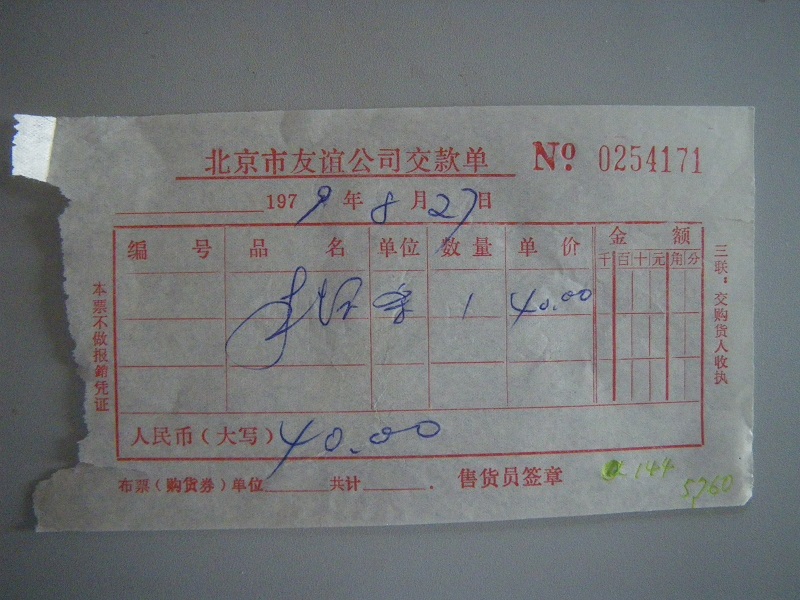 北京市友谊公司交款单 № 0254171
1979年8月27日
编号 品名 单位 数量 单价 金额
千百十元角分
1 40.00
人民币（大写）40.00
布票（购货券）单位 共计 . 售货员签章
本票不做报銷凭证
三联：交购货人收执
144
5,760